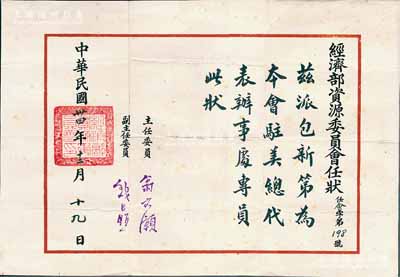 經濟部資源委員會任狀
任會字第198號
茲派包新第為
本會駐美總代
表辦事處專員
此狀
主任委員
翁文灝
副主任委員
錢昌照
中華民國卅四年十二月十九日